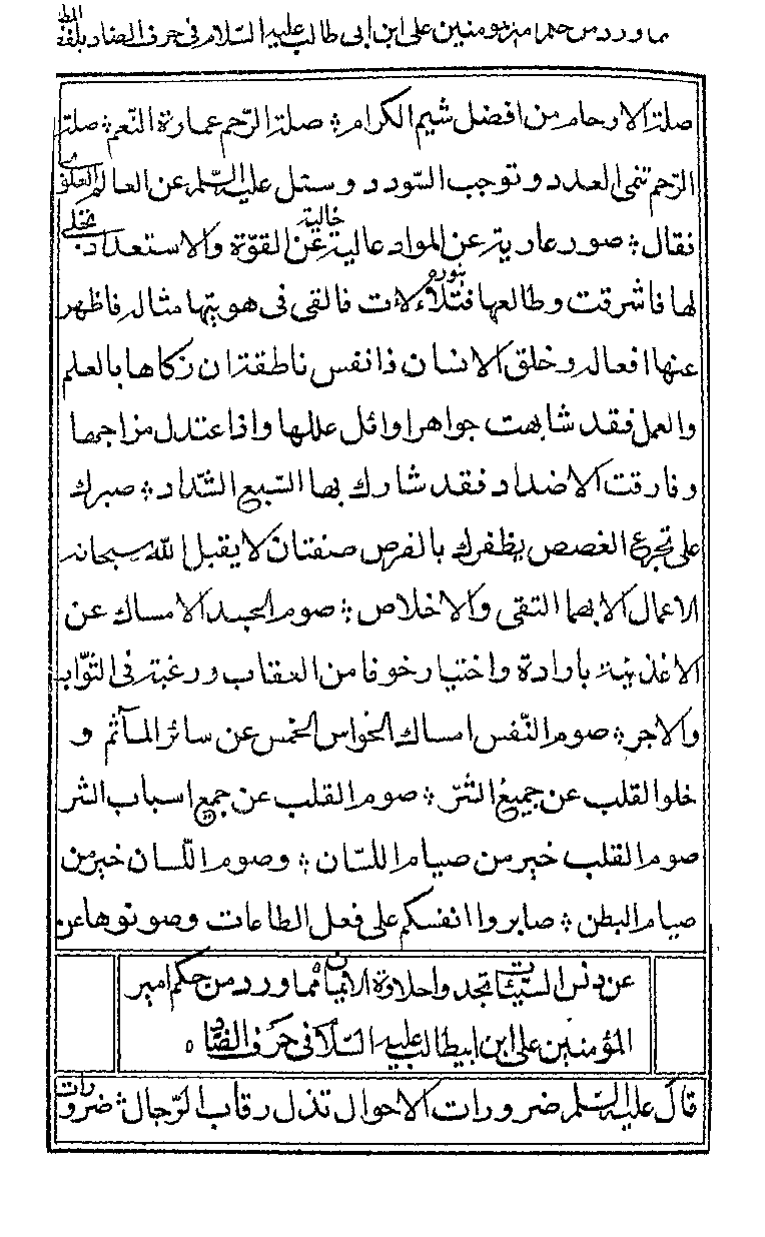 مما ورد من حكم امير المؤمنين على ابن ابى طالب عليه السّلام فى حرف الصّاد بلفظ المط
صلة الارحام من افضل شيم الكرام ؛ صلة الرّحم عمارة النّعم ؛ صلة
الرّحم تنمى العدد و توجب السّودد و سئل عليه السّلم عن العالم العلوى
فقال ؛ صور عارية عن المواد عالية خالية عن القوّة والاستعداد ؛ تجلى
لها فاشرقت و طالعها بنوره فتلألأت فالقى فى هويتها مثاله فاظهر
عنها افعاله و خلق الانسان ذا نفس ناطقة ان زكاها بالعلم
والعمل فقد شابهت جواهر اوائل عللها واذا اعتدل مزاجها
وفارقت الاضداد فقد شارك بها السّبع الشّداد ؛ صبرك
على تجرع الغصص يظفرك بالفرص صنفتان لا يقبل الله سبحانه
الاعمال الا بهما التقى والاخلاص ؛ صوم الجسد الامساك عن
الاغذية بارادة واختيار خوفا من العقاب ورغبة فى الثّواب
والاجر ؛ صوم النّفس امساك الحواس الخمس عن سائر المآثم و
خلوا القلب عن جميع الشّرّ ؛ صوم القلب عن جميع اسباب الشر
صوم القلب خير من صيام اللسّان ؛ وصوم اللّسان خير من
صيام البطن ؛ صابروا انفسكم على فعل الطاعات وصونوها عن
عن دنس السّيّئات تجدوا حلاوة الايمان ؛ مما ورد من حكم امير
المؤمنين على ابن ابيطالب عليه السّلام فى حرف الضّاد
قال عليه السّلم ضرورات الاحوال تذل رقاب الرّجال ؛ ضرورات